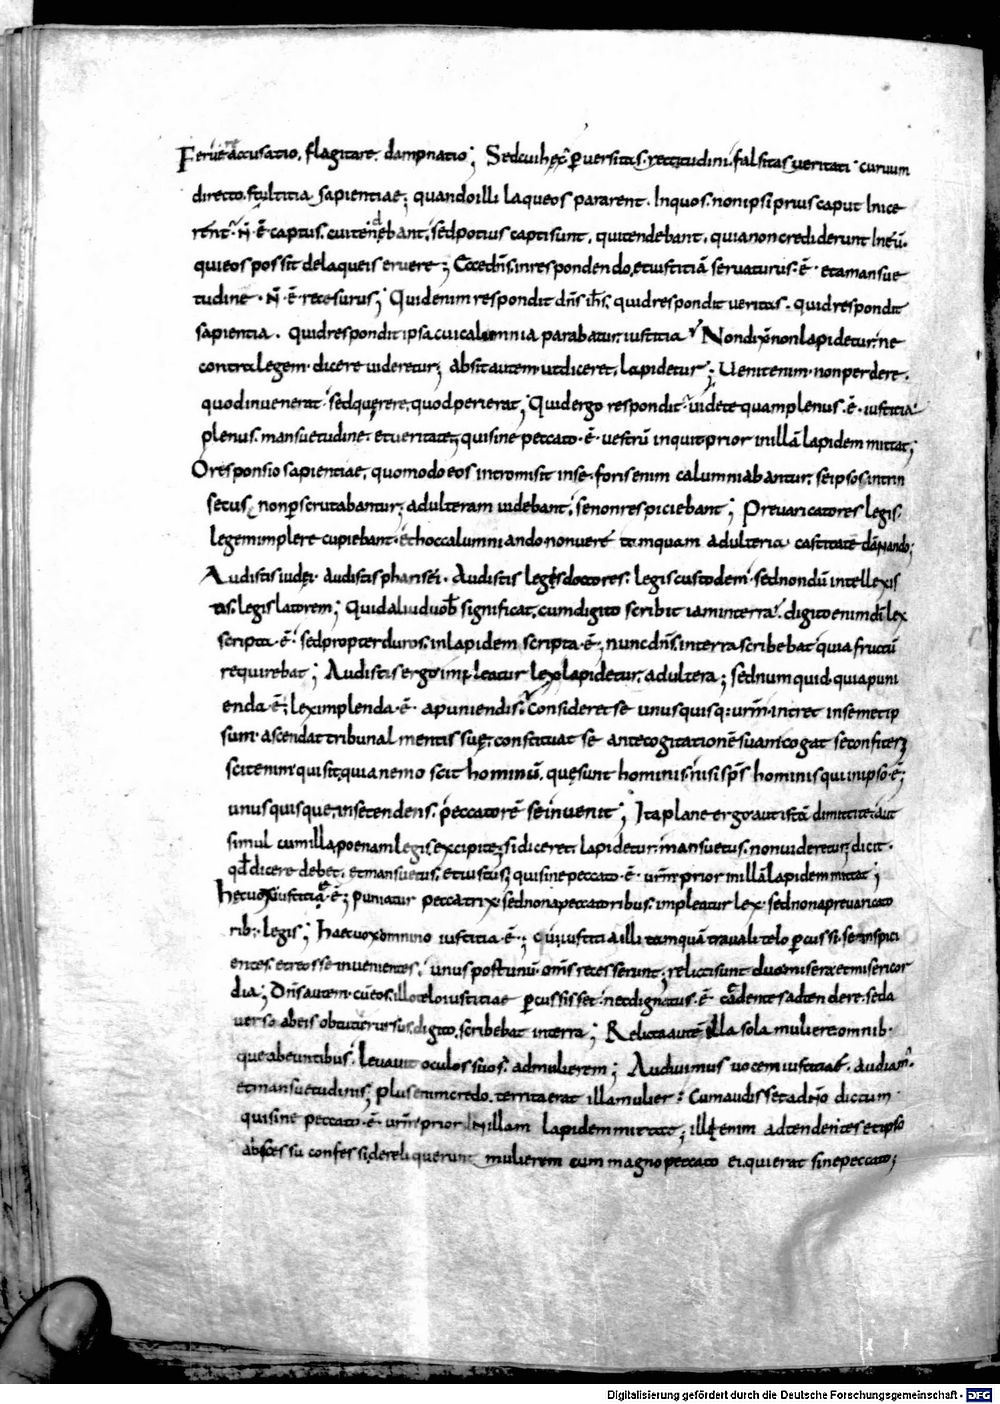 Feruere accusatio, flagitare dampnatio; Sed cui hęc? peruersitas rectitudini, falsitas ueritati curuum
directo, stultitia sapientiae; quando illi laqueos pararent. In quos, non ipsi prius caput inice
rent? N̄ ē captus, cui tendebant, sed potius capti sunt, qui tendebant, quia non crediderunt in eū,
qui eos possit de laqueis eruere; Ecce dn̄s, in respondendo, et iustitiā seruaturus ē et a mansue
tudine n̄ ē recesurus; Quid enim respondit dn̄s ih̄s, quid respondit ueritas, quid respondit
sapientia, quid respondit ipsa cui calumnia parabatur iustitia? Non dix̄ non lapidetur, ne
contra legem dicere uideretur; absit autem ut diceret, lapidetur; Uenit enim non perdere,
quod inuenerat, sed quęrere, quod perierat; Quid ergo respondit? uidete quam plenus ē iustitia,
plenus mansuetudine et ueritate; qui sine peccato ē uestrū inquit prior in illā lapidem mittat;
O responsio sapientiae, quomodo eos intromisit in se, foris enim calumniabantur, se ipsos intrin
secus non ꝑscrutabantur; adulteram uidebant, se non respiciebant; Preuaricatores legis,
legem implere cupiebant, et hoc calumniando non uere tamquam adulteria castitate dānando;
Audistis iudęi, audistis pharisęi, audistis legis doctores, legis custodem, sed nondū intellexis
tis, legislatorem; Quid aliud uob̄ significat, cum digito scribit iam in terra, digito enim dī lex
scripta ē, sed propter duros, in lapidem scripta ē, nunc dn̄s in terra scribebat quia fructū
requirebat; Audistis ergo impleatur lex lapidetur, adultera; sed num quid quia puni
enda ē, lex implenda ē a puniendis? Consideret se unusquisq: ur̄m intret in semetip
sum ascendat tribunal mentis suę, constituat se ante cogitationē suam cogat se confiteri;
scit enim quis sit, quia nemo scit hominū, quę sunt hominis, nisi sp̄s hominis qui in ipso ē;
unusquisque, in se tendens, peccatorē se inuenit; Ita plane ergo aut istā dimittite, aut
simul cum illa poenam legis excipite; si diceret, lapidetur, mansuetus, non uideretur; dicit
qđ dicere debet, et mansuetus, et iustus; qui sine peccato ē ur̄m prior in illā lapidem mittat;
hec uox iustitia ē; puniatur peccatrix sed non a peccatoribus, impleatur lex, sed non a preuarica to
rib: legis; haec uox omnino iustitia ē; cui iustitia illi tamquā trauali telo ꝑcussi, se inspici
entes et reos se inuenientes, unus post unū, om̄s recesserunt; relicti sunt duo misera et misericor
dia; Dn̄s autem cū eos, illo telo iustitiae ꝑcussisset, nec dignatus ē cadentes adtendere, sed a
uerso ab eis obtuitu rursus, digito scribebat in terra; Relicta autē illa sola muliere omnib:
que abeuntibus, leuauit oculos suos, ad mulierem; Audiuimus uocem iustitiae, audiam:
et mansuetudinis; plus enim credo, territa erat illa mulier, Cum audisset a dn̄o dictum
qui sine peccato ē ur̄m prior in illam lapidem mittat; illi enim adtendentes et ipso
abscessu confessi, dereliquerunt mulierem cum magno peccato ei qui erat sine peccato;
Digitalisierung gefördert durch die Deutsche Forschungsgemeinschaft · DFG